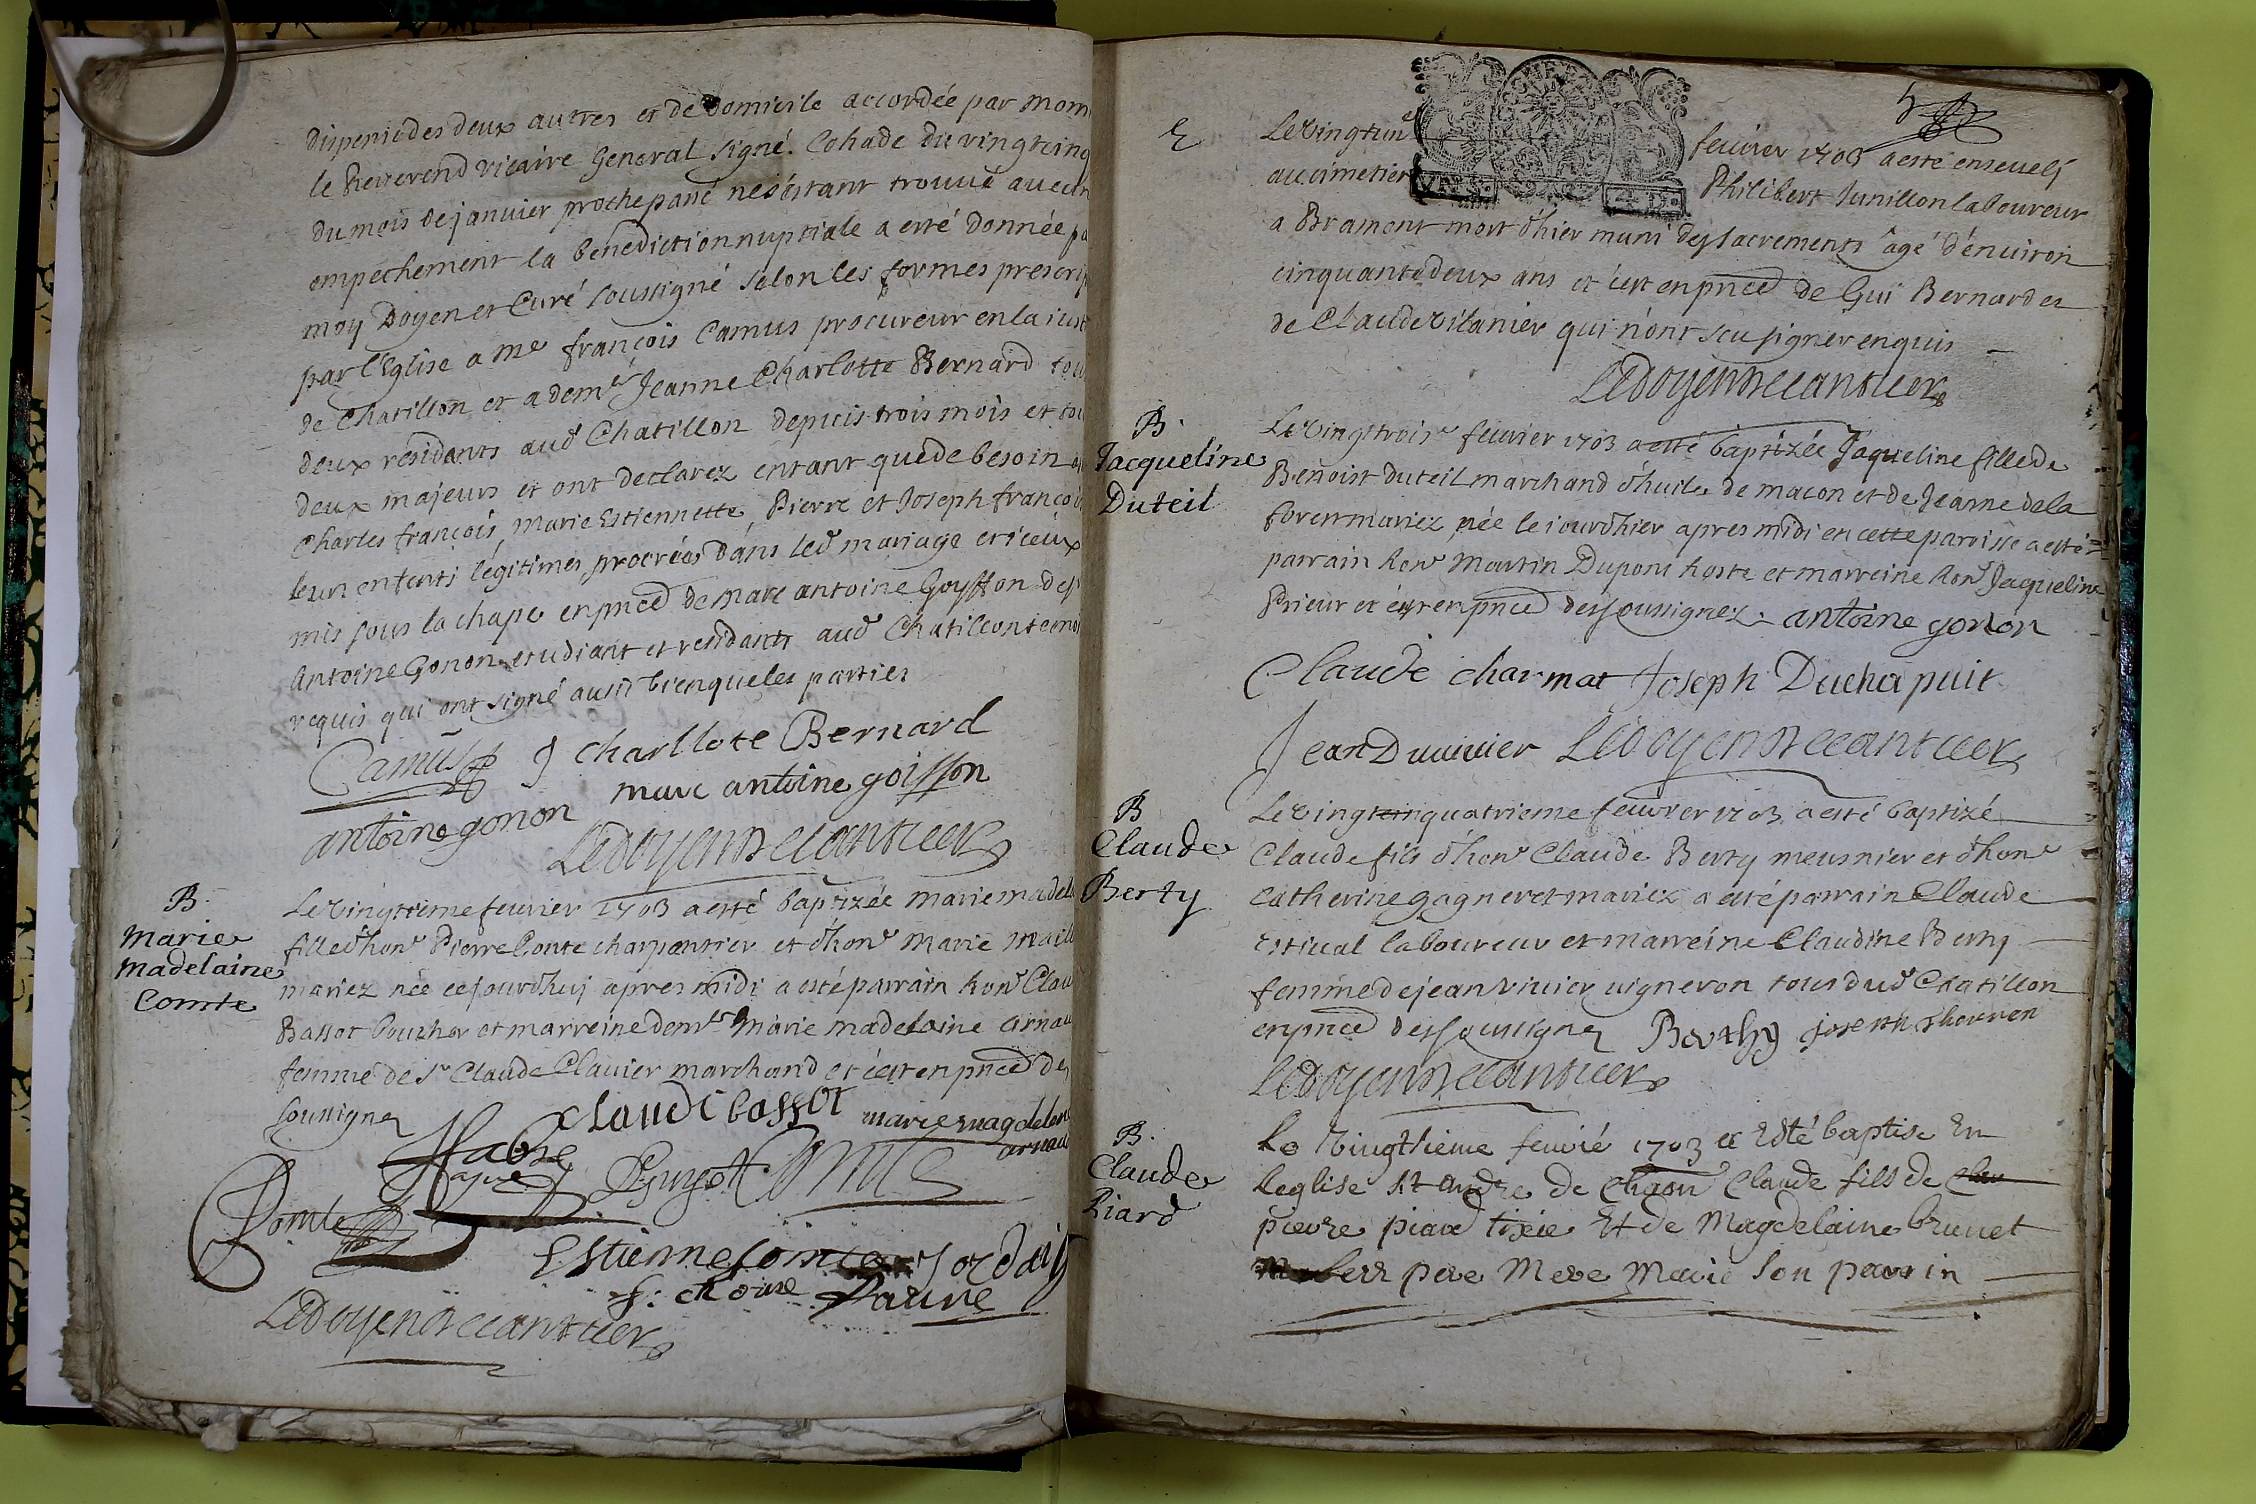 dispense des deux autres et de domicile accordée par mom
le Reverend vicaire General signé. Cohade du vingtcinq
du mois de janvier proche passé ne s'estant trouvé aucun
empechement la benediction nuptiale a esté donnée pa
moy Doyen et Curé soussigné selon les formes prescri
par l'Eglise a me françois Camus procureur en la just
de Chatillon et a demle Jeanne Charlotte Bernard tou
deux residants aud Chatillon depuis trois mois et tou
deux majeurs et ont declarez entant que de besoin
Charles françois, marie Estiennette, Pierre et Joseph françois
leurs enfants légitimes procréés dans led mariage et iceux
mis sous la chape en pnce de marc antoine Goyffon
Antoine Gonon etudiant et residants aud Chatillon temoi
requis qui ont signé aussi bien que les parties
Camus J charllote Bernard
marc antoine goiffon
antoine gonon
Ledoyen
B.
Marie
Madelaine
Comte
Le Vingtieme feuvrier 1703 a esté baptizée marie madel
fille d'hon Pierre Conte charpantier et d'hon Marie
mariez née cejourd'huy apres midi a esté parrain hon Clau
Bassot boucher et marreine demle Marie madelaine arnau
femme de Sr Claude Clavier marchand et c'est en pnce des
soussignez
claude bassot marie magdelene
arnau
Guyot
Comte
Estienne comte Jordain
Faure
Ledoyen
5
E
Le Vingtune feuvrier 1703 a esté enseveli
au cimetier Philibert Junillon laboureur
a Bramont mort d'hier muni des sacrements âgé d'environ
cinquante deux ans et c'est en pnce de Gui Bernard et
de Claude Vilanier qui n'ont sçu signer enquis
Ledoyen
B.
Jacqueline
Duteil
Le Vingttrois feuvrier 1703 a esté baptizée Jaqueline fille de
Benoist duteil marchand d'huile de macon et de Jeanne dela
forest mariez, née le jour d'hier apres midi en cette paroisse a esté
parrain hon Martin Dupont hoste et marreine hon Jaqueline
Prieur et c'est en pnce des soussignez antoine gonon
Claude charmat Joseph Duchapuit
Jean Duvivier Ledoyen
B
Claude
Berty
Le Vingt quatrieme feuvrer 1703 a esté baptizé
Claude fils d'hon Claude Berty meusnier et d'hon
Catherine gagneret mariez a esté parrain Claude
Estival laboureur et marreine Claudine Berty
femme de jean vivier vigneron tous dud Chatillon
en pnce des soussignez Berthy joseph
Ledoyen
B.
Claude
Piard
Le Vingthieme feuvié 1703 a Esté baptise En
Leglise St andre de Claude fils de
pierre piard tixie Et de Magdelaine brunet
pere Mere Marié Son parrin